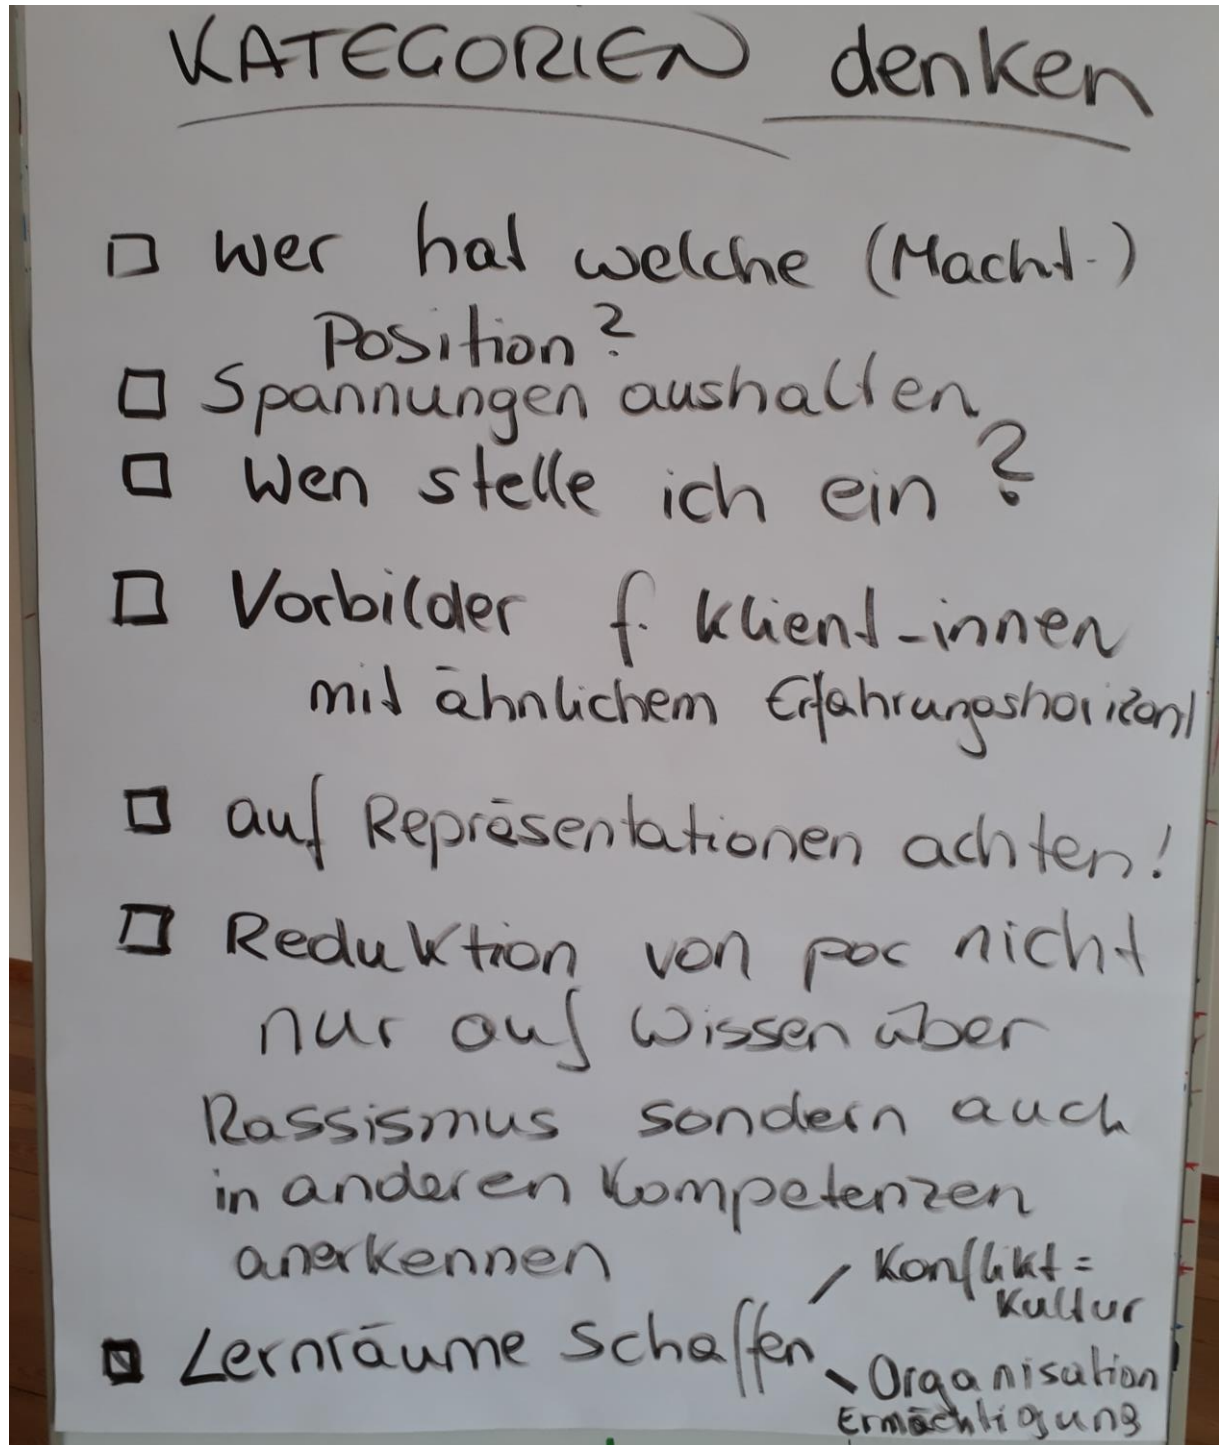 KATEGORIEN denken
wer hat welche (Macht-)
Position?
Spannungen aushalten
Wen stelle ich ein?
Vorbilder f. Klient_innen
mit ähnlichem Erfahrungshorizont
auf Repräsentationen achten!
Reduktion von poc nicht
nur auf Wissen über
Rassismus sondern auch
in anderen Kompetenzen
anerkennen
Konflikt=
Kultur
Lernräume schaffen
Organisation
Ermächtigung